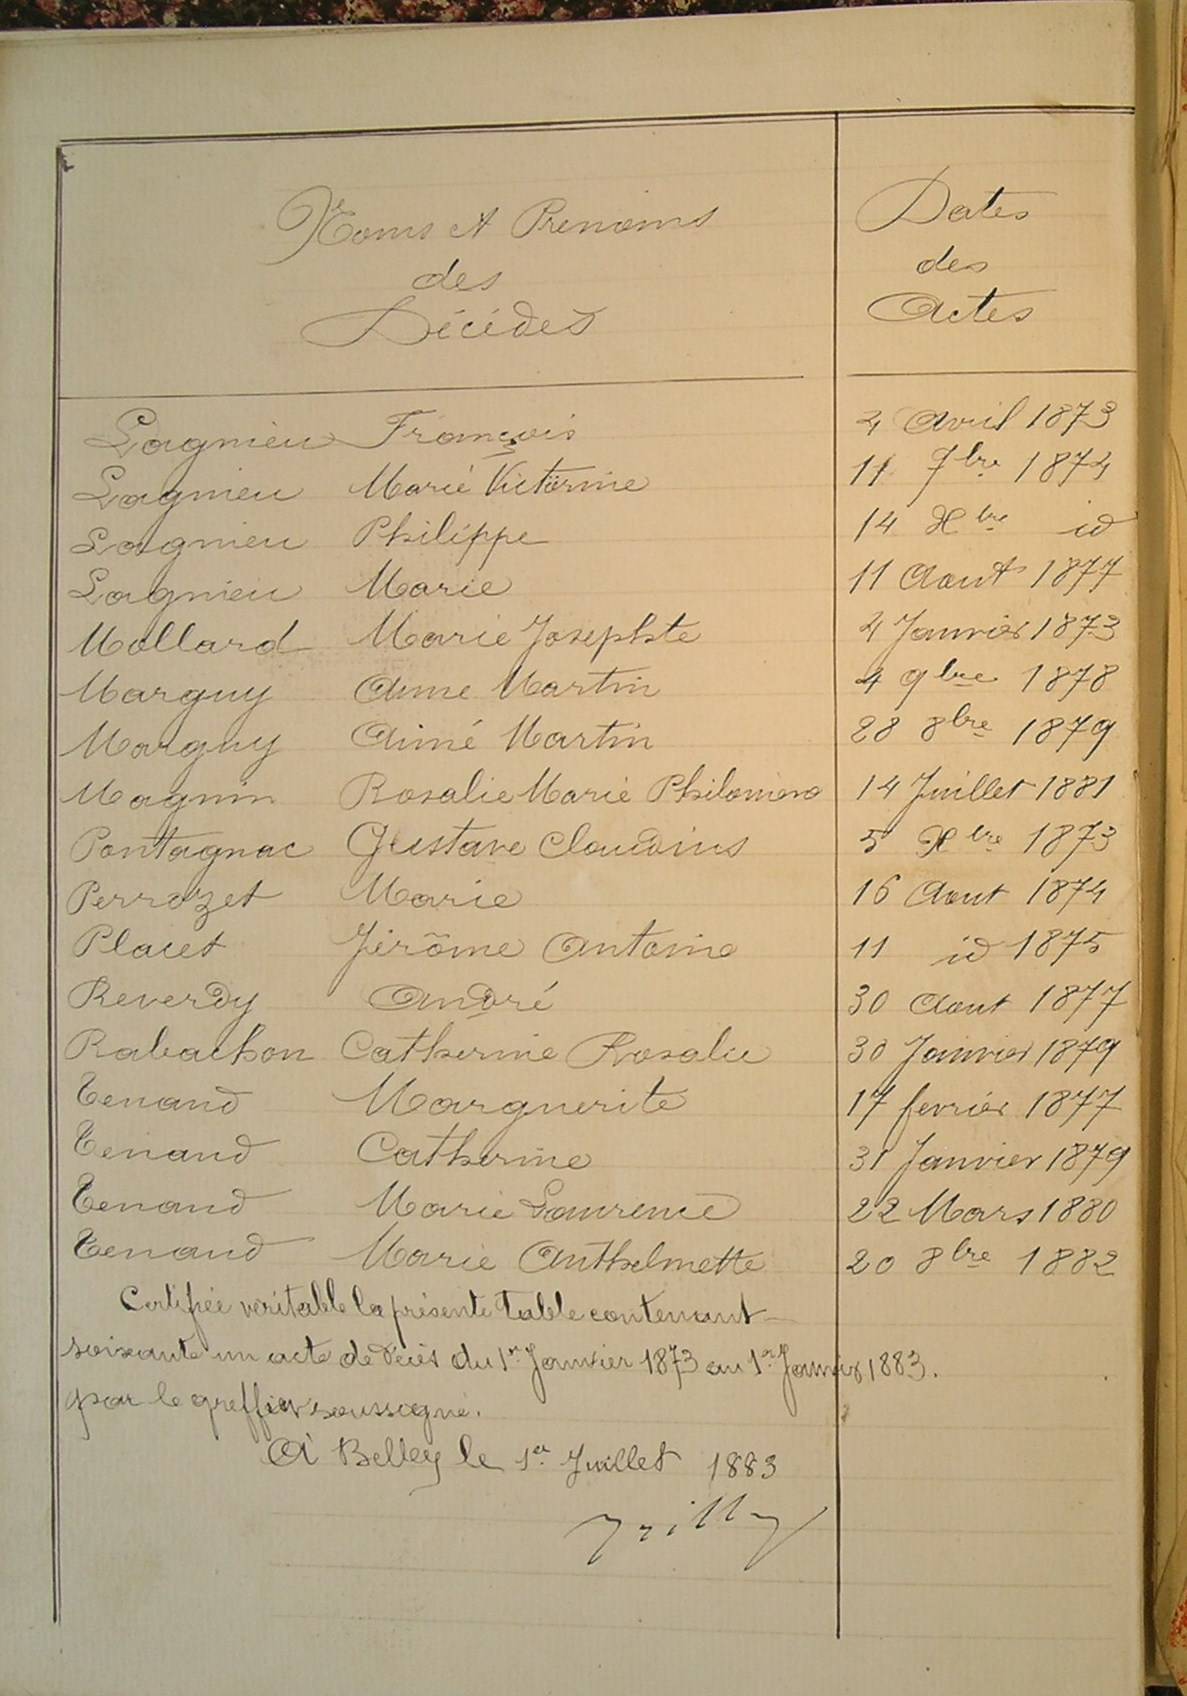 Noms et Prenoms
des
Décédés
Dates
des
Actes
Lagnieu François 4 Avril 1873
Lagnieu Marie Victorine 11 7bre 1874
Lagnieu Philippe 14 Xbre id
Lagnieu Marie 11 Aout 1877
Mollard Marie Josephte 4 Janvier 1873
Marguy Aime Martin 4 9bre 1878
Marguy Aimé Martin 28 8bre 1879
Magnin Rosalie Marie Philomène 14 Juillet 1881
Pontagnac Gustave Claudius 5 Xbre 1873
Perrozet Marie 16 Aout 1874
Placet Jérôme Antoine 11 id 1875
Reverdy André 30 Aout 1877
Rabachon Catherine Rosalie 30 Janvier 1879
Tenand Marguerite 17 fevrier 1877
Tenand Catherine 31 Janvier 1879
Tenand Marie Laurence 22 Mars 1880
Tenand Marie Anthelmette 20 8bre 1882
Certifiée véritable la présente table contenant
soixante un acte de décès du 1er Janvier 1873 au 1er Janvier 1883.
par le greffier soussigné.
A Belley le 1er Juillet 1883